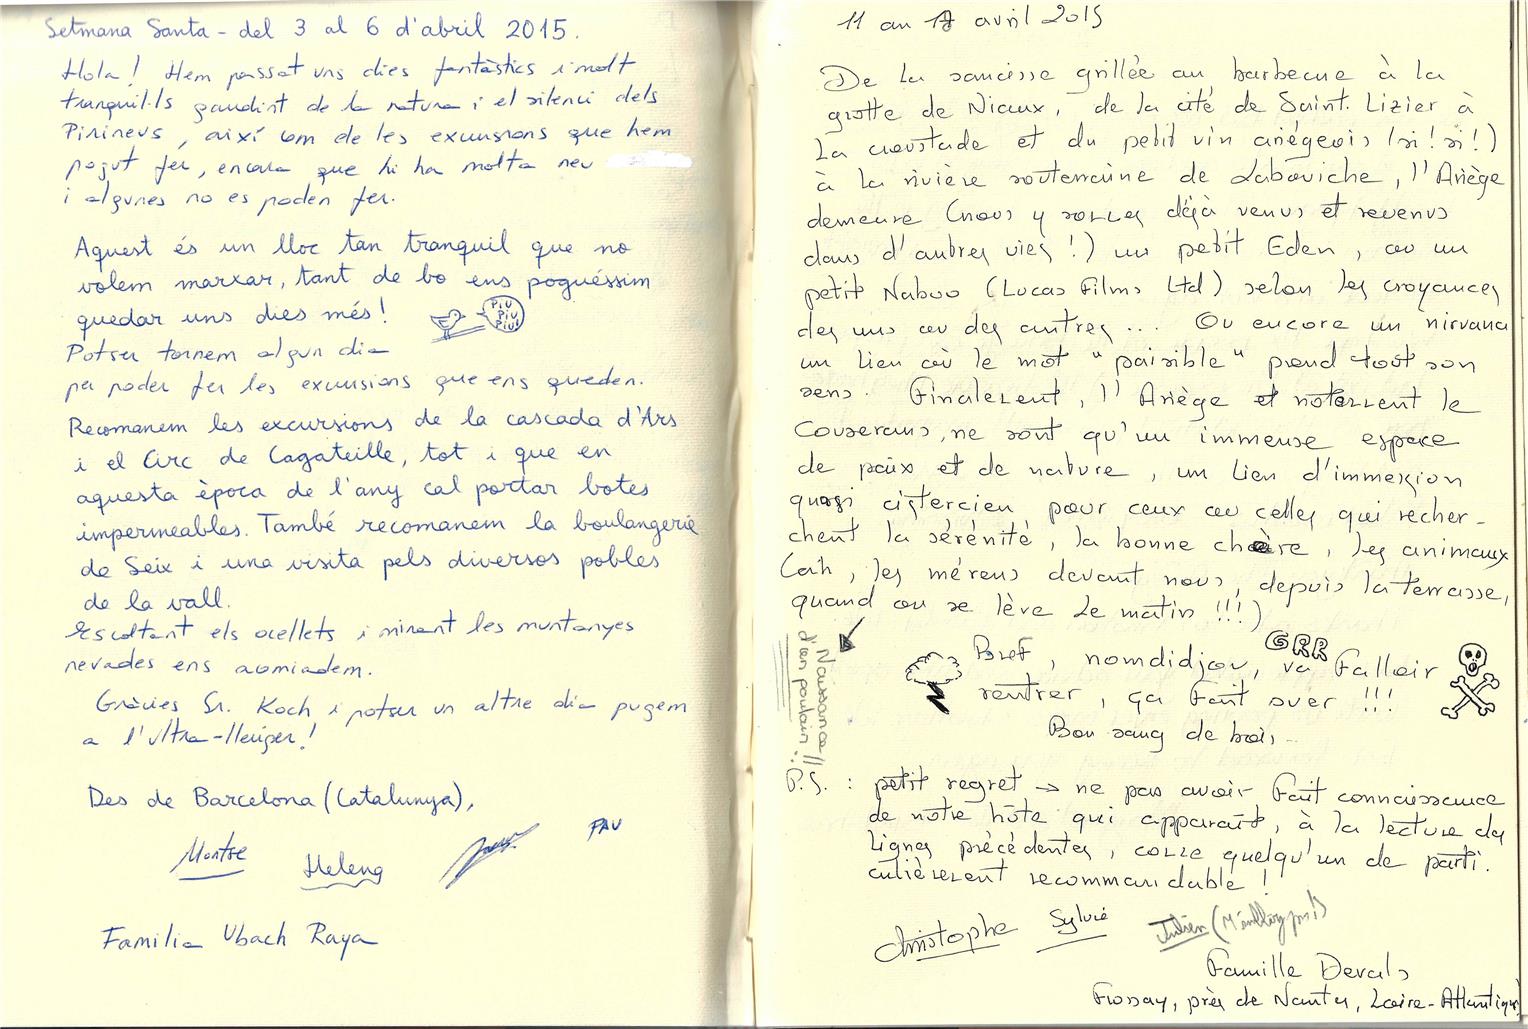 Setmana Santa - del 3 al 6 d'abril 2015.
Hola! Hem passat uns dies fantàstics i molt
tranquil·ls gaudint de la natura i el silenci dels
Pirineus, així com de les excursions que hem
pogut fer, encara que hi ha molta neu
i algunes no es poden fer.
Aquest és un lloc tan tranquil que no
volem marxar, tant de bo ens poguéssim
quedar uns dies més!
PIU
PIU
PIU!
Potser tornem algun dia
per poder fer les excursions que ens queden.
Recomanem les excursions de la cascada d'Ars
i el Circ de Cagateille, tot i que en
aquesta època de l'any cal portar botes
impermeables. També recomanem la boulangerie
de Seix i una visita pels diversos pobles
de la vall.
Escoltant els ocellets i mirant les muntanyes
nevades ens acomiadem.
Gràcies Sr. Koch i potser un altre dia pugem
a l'ultra-lleuger!
Des de Barcelona (Catalunya),
Montse
Helena
PAU
Familia Ubach Raya
11 au 17 avril 2015
De la saucisse grillée au barbecue à la
grotte de Niaux, de la cité de Saint. Lizier à
la croustade et du petit vin ariégeois (si! si!)
à la rivière souterraine de Labouiche, l'Ariège
demeure (nous y sommes déjà venus et revenus
dans d'autres vies!) un petit Eden, ou un
petit Naboo (Lucas Films Ltd) selon les croyances
des uns ou des autres ... Ou encore un nirvana
un lieu où le mot "paisible" prend tout son
sens. Finalement, l'Ariège et notamment le
Couserans, ne sont qu'un immense espace
de paix et de nature, un lieu d'immersion
quasi cistercien pour ceux ou celles qui recher-
chent la sérénité, la bonne chère, les animaux
(ah, les mérens devant nous, depuis la terrasse,
quand on se lève le matin !!!)
Naissance
d'un poulain!!
GRR
Bref, nomdidjou, va falloir
rentrer, ça fait suer !!!
Bon sang de bois...
P.S. : petit regret → ne pas avoir fait connaissance
de notre hôte qui apparaît, à la lecture des
lignes précédentes, comme quelqu'un de parti-
culièrement recommandable !
Christophe
Sylvie
Julien (M'oubliez pas!)
Famille Devals
Frossay, près de Nantes, Loire-Atlantique